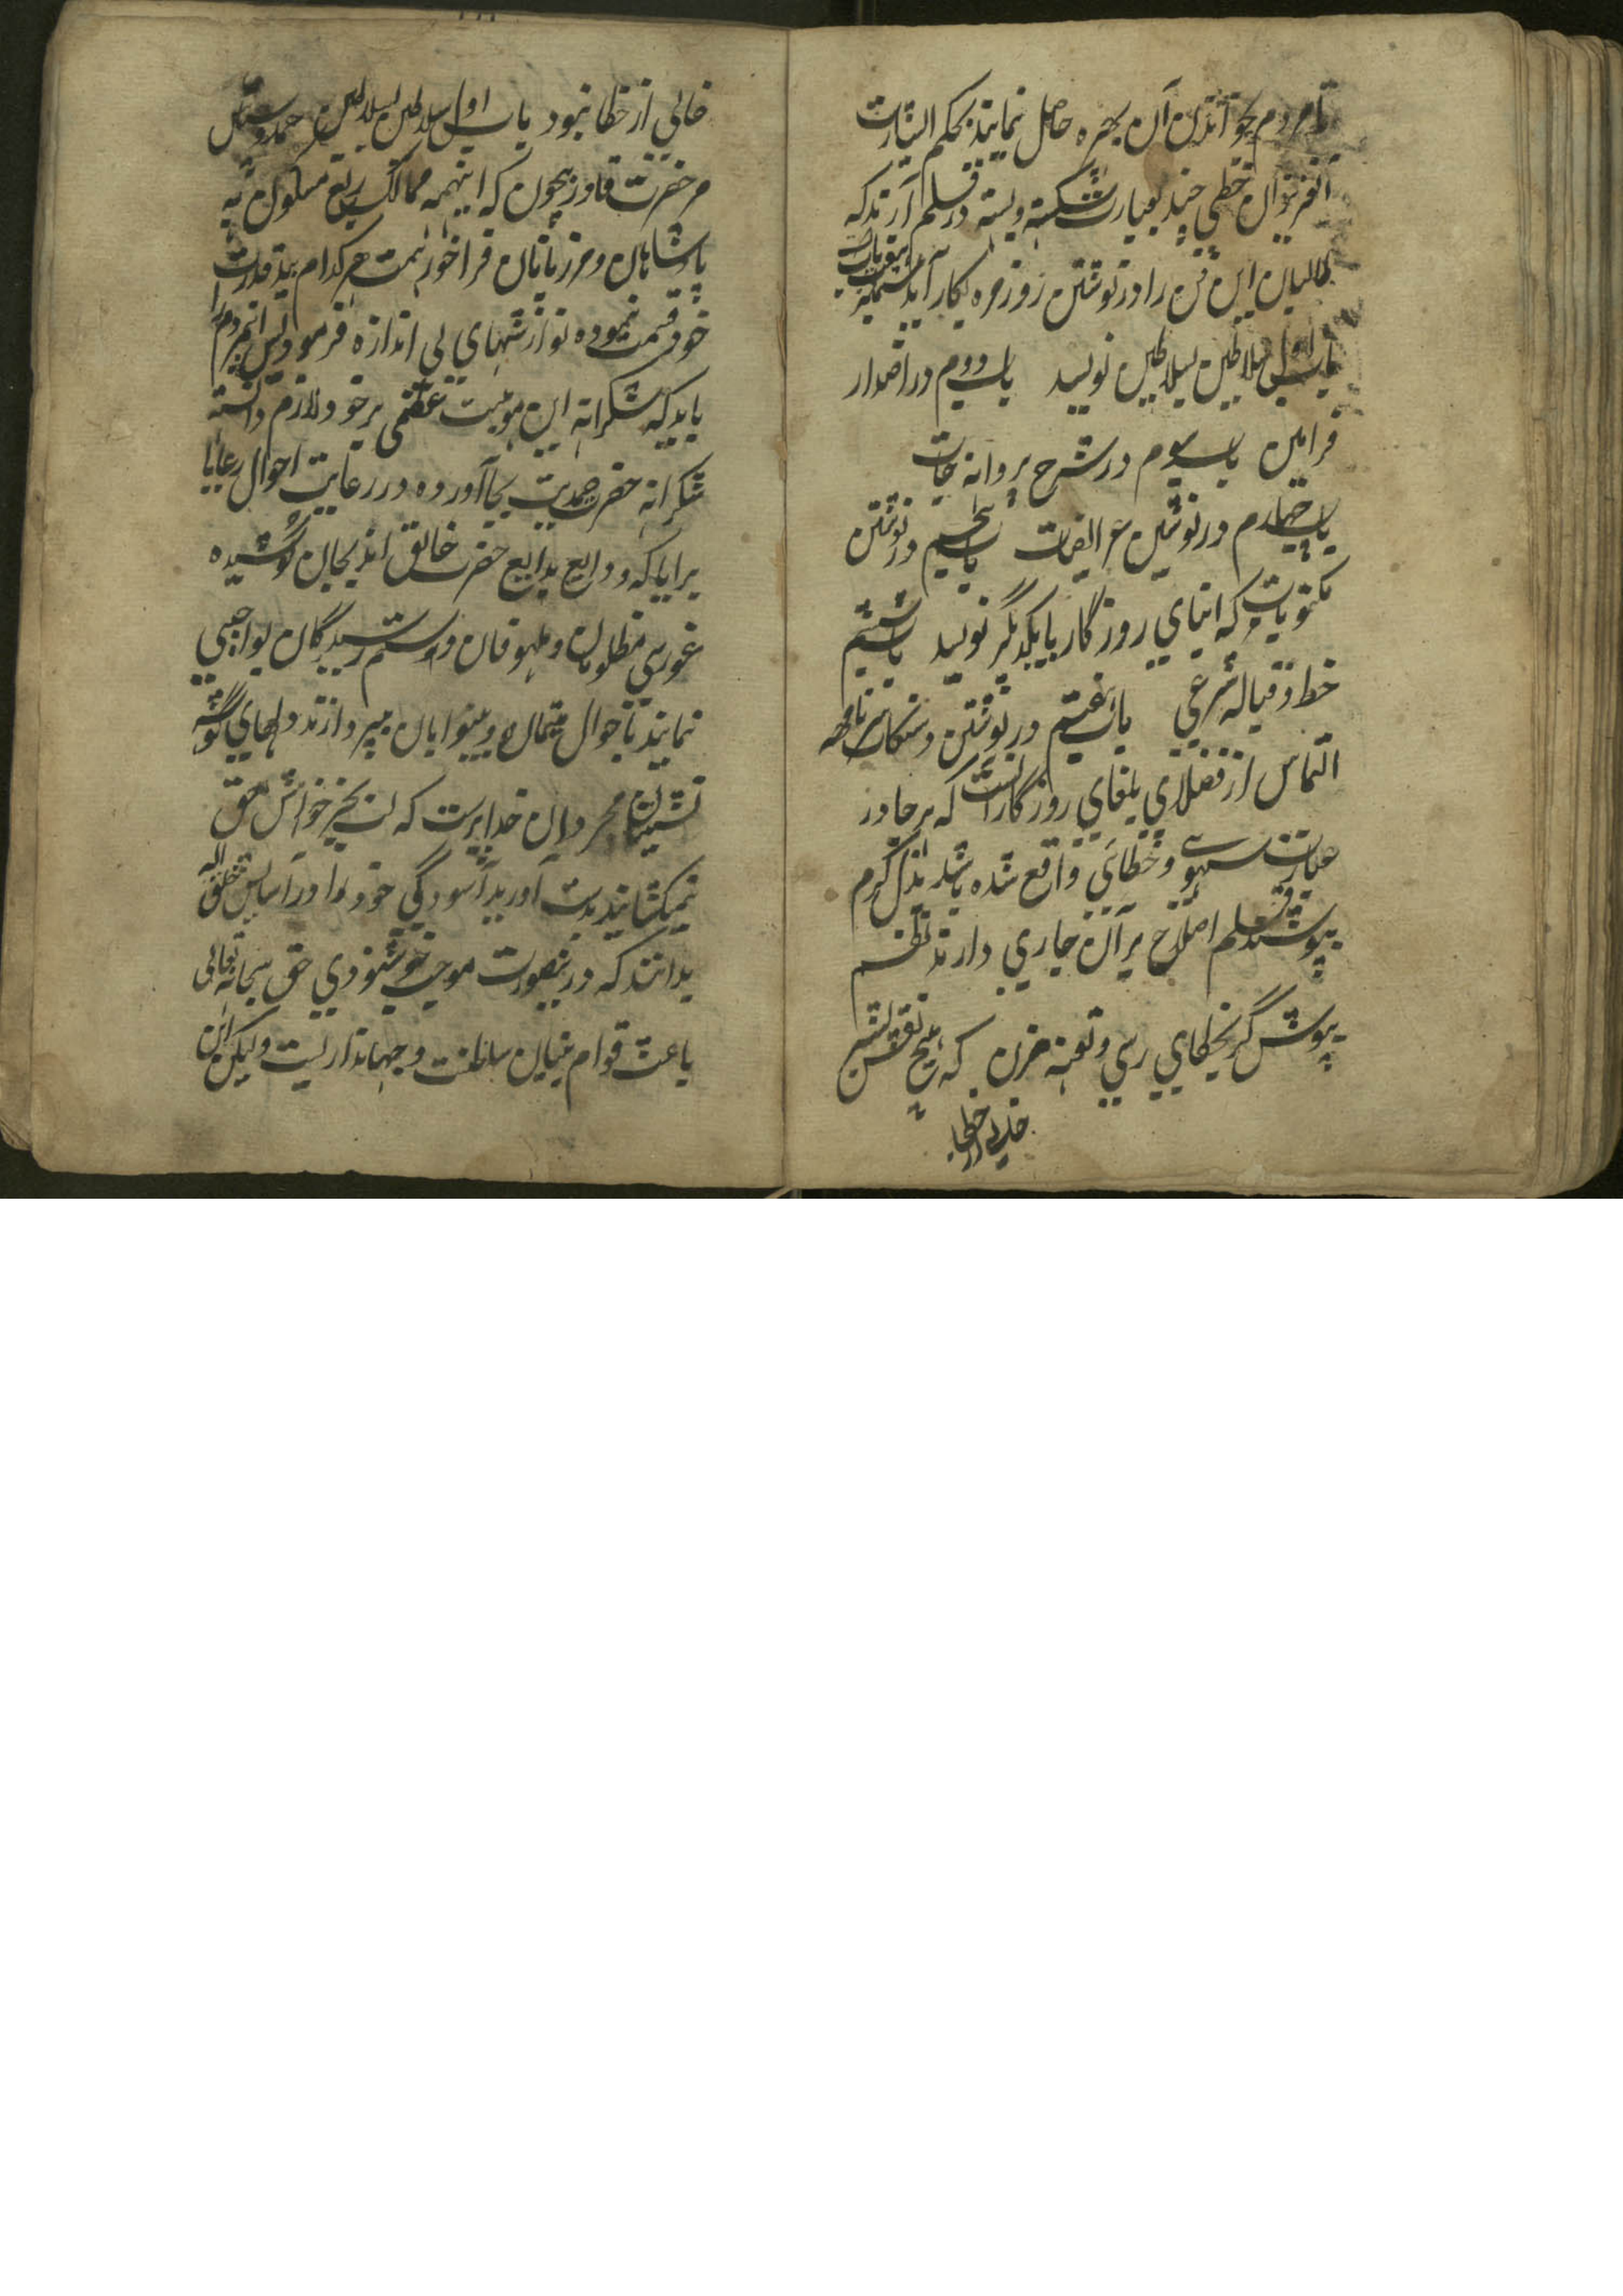 تا مردم بخواندن آن بهره حاصل نمایند بحکم اشارت
آنعزیزان خطی چند بعبارت شکسته و بسته در قلم آرند که
طالبان این فن را در نوشتن روزمره بکار آید مشتمل بهفت باب
باب اول سلاطین بسلاطین نویسند باب دویم در اصدار
فرامین باب سیوم در شرح پروانه جات
باب چهارم در نوشتن عرایضات باب پنجم در نوشتن
مکتوبات که ابنای روزگار بایکدیگر نویسند باب ششم
خط و قباله شرعی باب هفتم در نوشتن دستکات سرنامهه
التماس از فضلای بلغای روزگار آنست که هر جا در
عبارت سهوی و خطائی واقع شده باشد بذیل کرم
بپوشند و قلم اصلاح بر آن جاری دارند نظم
بپوش گر بخطای رسی و طعنه مزن که هیچ نفس بشر
خالی از خطا
خالی از خطا نبود باب اول سلاطین بسلاطین حمد و سپاس
مر حضرت داور بیچون که اینهمه ممالک ربع مسکون به
پادشاهان و مرزبانان فراخور همت هر کدام بید قدرت
خود قسمت نموده نوازشهای بی اندازه فرمود پس این مردم را
باید که شکرانه این موهبت عظمی بر خود لازم دانسته
شکرانه حضرت صمدیت بجا آورده در رعایت احوال رعایا
برایا که ودایع بدایع حضرت خالق اند بجان کوشیده
غوررسی مظلومان و ملهوفان و ستم رسیدگان بواجبی
نمایند تا احوال یتیمان و بینوایان بپردازند دلهای گوشه
نشینان مردان خدا پرست که لب بجز خواهش حق
نمیکشایند بدست آورند آسودگی خود را در آسایش خلق الله
بدانند که درینصورت موجب خوشنودی حق سبحانه تعالی
باعث قوام بنیان سلطنت و جهانداریست ولیکن این